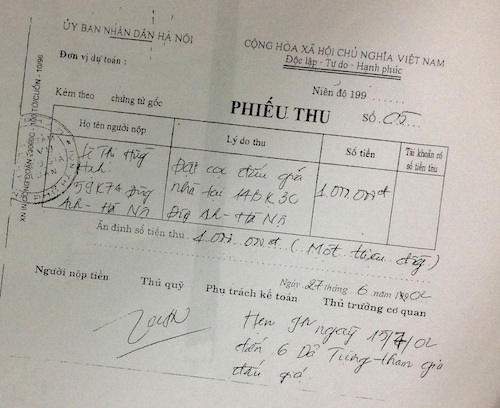 ỦY BAN NHÂN DÂN HÀ NỘI
CỘNG HÒA XÃ HỘI CHỦ NGHĨA VIỆT NAM
Độc lập - Tự do - Hạnh phúc
Đơn vị dự toán :
Niên độ 199 ....
Kèm theo chứng từ gốc
PHIẾU THU Số 05
Họ tên người nộp Lý do thu Số tiền Tài khoản có số tiền thu
Lê Thị
59K7A
Anh - Hà Nội
Đặt cọc đấu giá
nhà tại 14B K3C
Anh - Hà Nội
1.000.000đ
Ấn định số tiền thu 1.000.000đ (Một triệu đồng)
Ngày 27 tháng 6 năm 02
Người nộp tiền Thủ quỹ Phụ trách kế toán Thủ trưởng cơ quan
Hẹn 9h ngày 15/7/02
đến 6 Dã Tượng tham gia
đấu giá